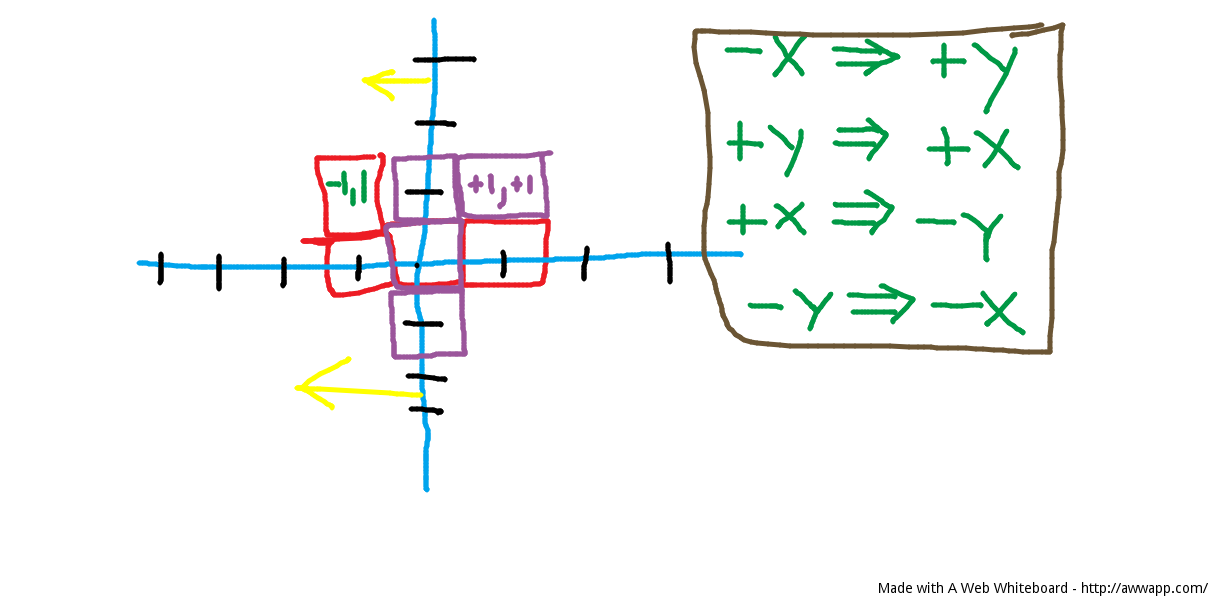 -X ⇒ +y
-1,1
+1,+1
+y ⇒ +X
+X ⇒ -Y
-Y ⇒ -X
Made with A Web Whiteboard - http://awwapp.com/